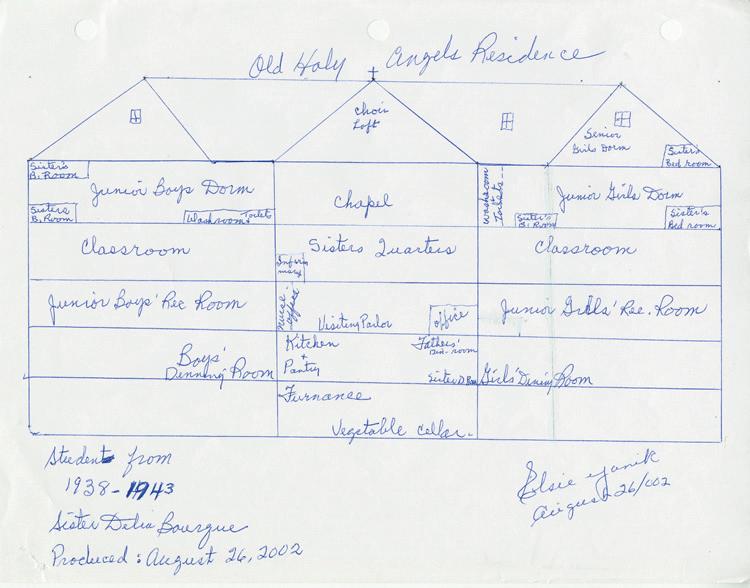 Old Holy Angels Residence
Choir
Loft
Senior
Girls Dorm
Sister's
B. Room
Sister's
Bed room
Junior Boys Dorm
Chapel
Washroom
+
Toilets
Junior Girls Dorm
Sisters
B. Room
Washroom + Toilets
Sister's
B. Room
Sister's
Bed room
Classroom
Sisters Quarters
Classroom
Infir
mary
Junior Boys' Rec Room
Nurse
office
Visiting Parlor
office
Junior Girls' Rec. Room
Boys'
Denning Room
Kitchen
+
Pantry
Fathers'
Din. room
Sister D Rm
Girls' Dining Room
Furnance
Vegetable cellar.
Student from
1938-1943
Sister Delia Bourque
Produced: August 26, 2002
Elsie Yanik
August 26/002